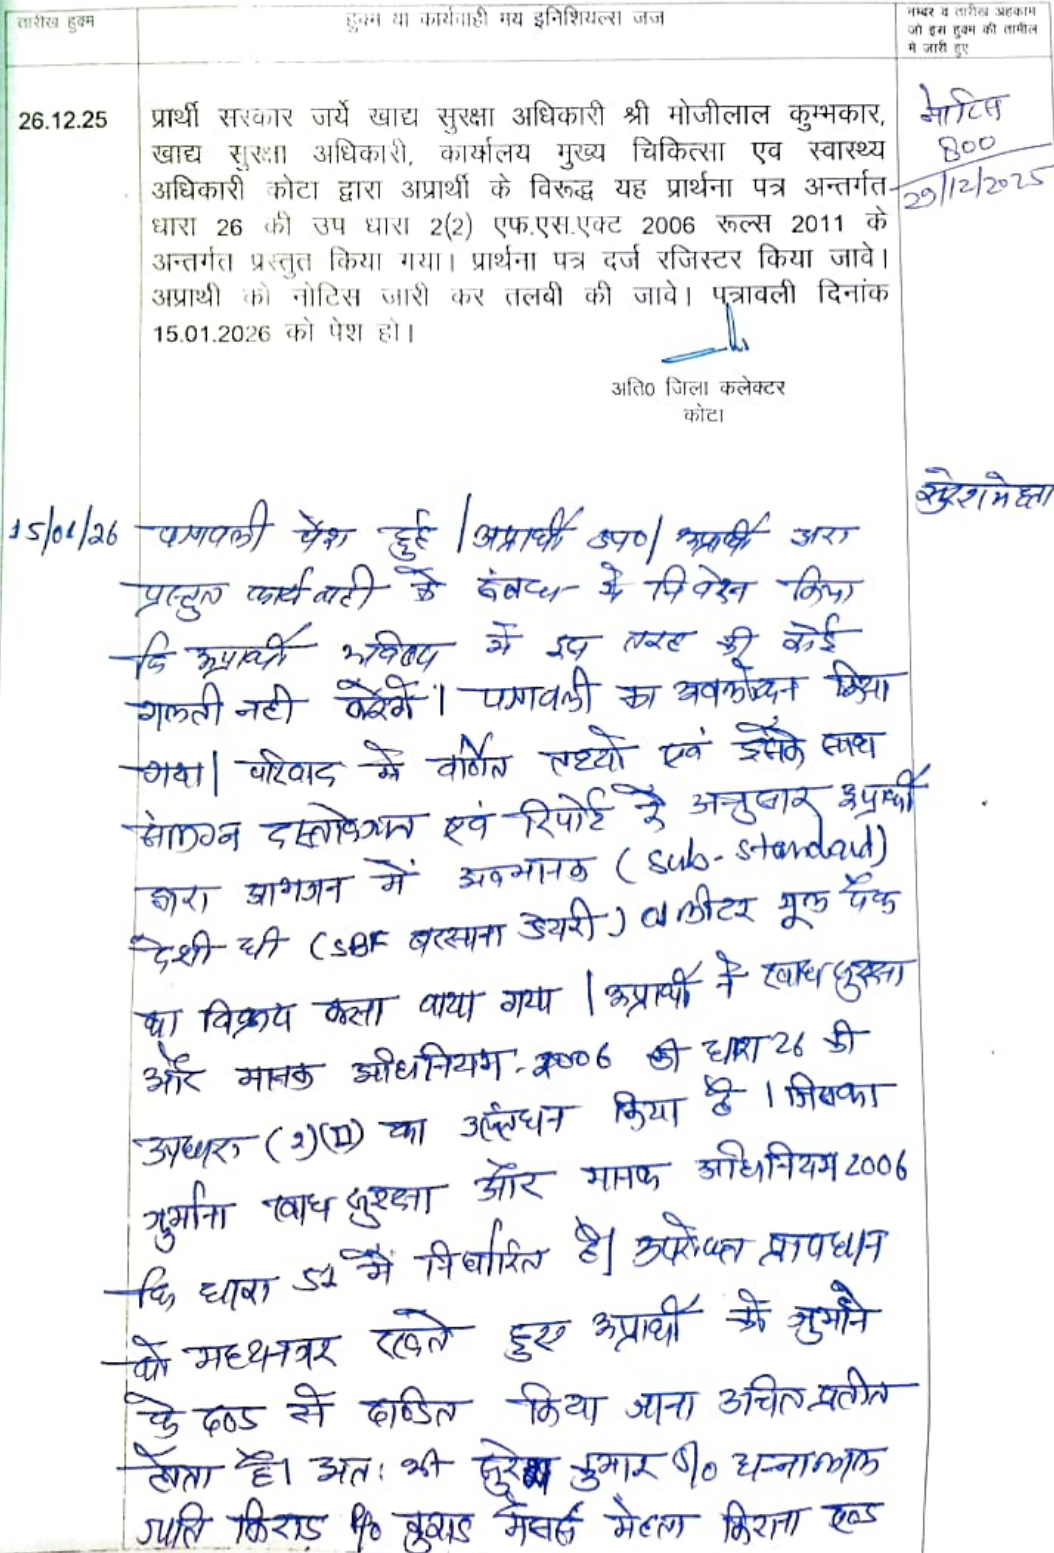 तारीख हुक्म
हुक्म या कार्यवाही मय इनिशियल्स जज
नम्बर व तारीख अहकाम
जो इस हुक्म की तामील
मे जारी हुए
26.12.25
प्रार्थी सरकार जर्ये खाद्य सुरक्षा अधिकारी श्री मोजीलाल कुम्भकार,
खाद्य सुरक्षा अधिकारी, कार्यालय मुख्य चिकित्सा एव स्वास्थ्य
अधिकारी कोटा द्वारा अप्रार्थी के विरूद्ध यह प्रार्थना पत्र अन्तर्गत
धारा 26 की उप धारा 2(2) एफ.एस.एक्ट 2006 रूल्स 2011 के
अन्तर्गत प्रस्तुत किया गया। प्रार्थना पत्र दर्ज रजिस्टर किया जावे।
अप्रार्थी को नोटिस जारी कर तलबी की जावे। पत्रावली दिनांक
15.01.2026 को पेश हो।
नोटिस
800
29/12/2025
अति0 जिला कलेक्टर
कोटा
सुरेश मेहता
15/01/26
पत्रावली पेश हुई | अप्रार्थी उप0 | अप्रार्थी द्वारा
प्रस्तुत कार्यवाही के संबंध में निवेदन किया
कि अप्रार्थी भविष्य में इस तरह की कोई
गलती नही करेंगे। पत्रावली का अवलोकन किया
गया | परिवाद में वर्णित तथ्यो एवं इसके साथ
संलग्न दस्तावेजात एवं रिपोर्ट के अनुसार अप्रार्थी
द्वारा आमजन में अवमानक (Sub-standard)
देशी घी (SBF बरसाना डेयरी) लीटर मूल पैक
का विक्रय करता पाया गया | अप्रार्थी ने खाद्य सुरक्षा
और मानक अधिनियम-2006 की धारा 26 की
उपधारा (2)(II) का उल्लंघन किया है। जिसका
जुर्माना खाद्य सुरक्षा और मानक अधिनियम 2006
कि धारा 51 में निर्धारित है| उपरोक्त प्रावधान
को मध्यनजर रखते हुए अप्रार्थी को जुर्माने
के दण्ड से दण्डित किया जाना उचित प्रतीत
होता है। अतः श्री सुरेश कुमार S/o धन्नालाल
जाति किराड P/o मैसर्स मेहता किराना एण्ड